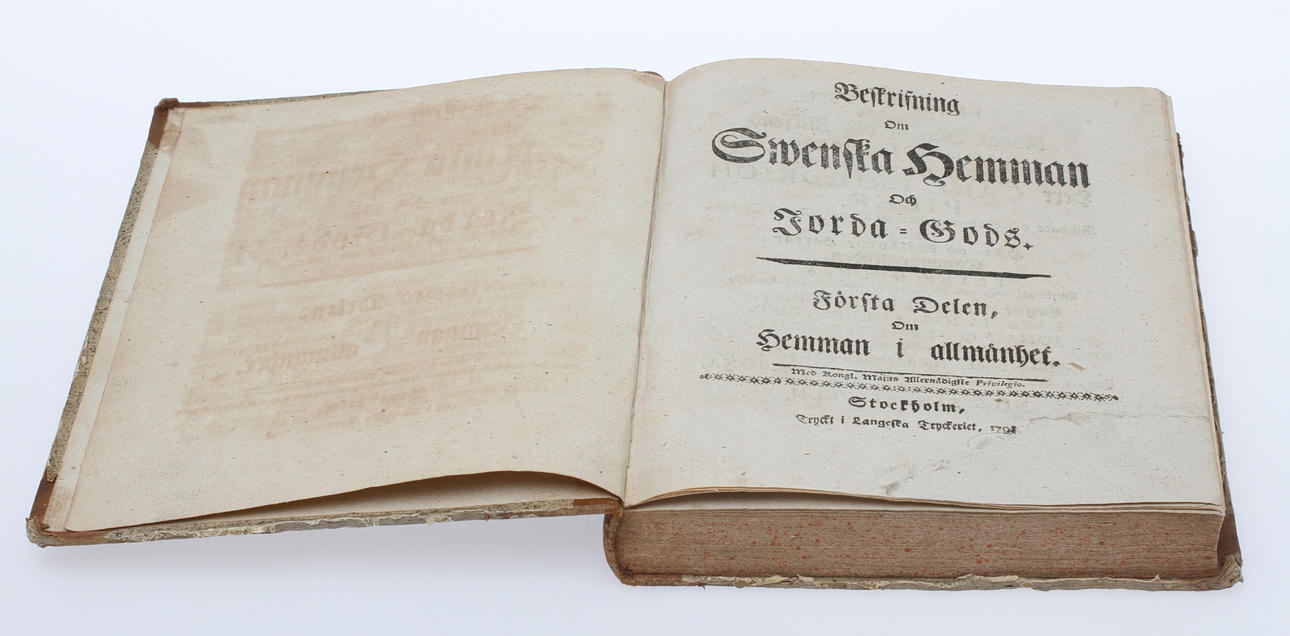 Beskrifning
Om
Swenska Hemman
Och
Jorda=Gods.
Första Delen,
Om
Hemman i allmänhet.
Med Kongl. Maj:ts Allernådigste Privilegio.
Stockholm,
Tryckt i Langeska Tryckeriet,